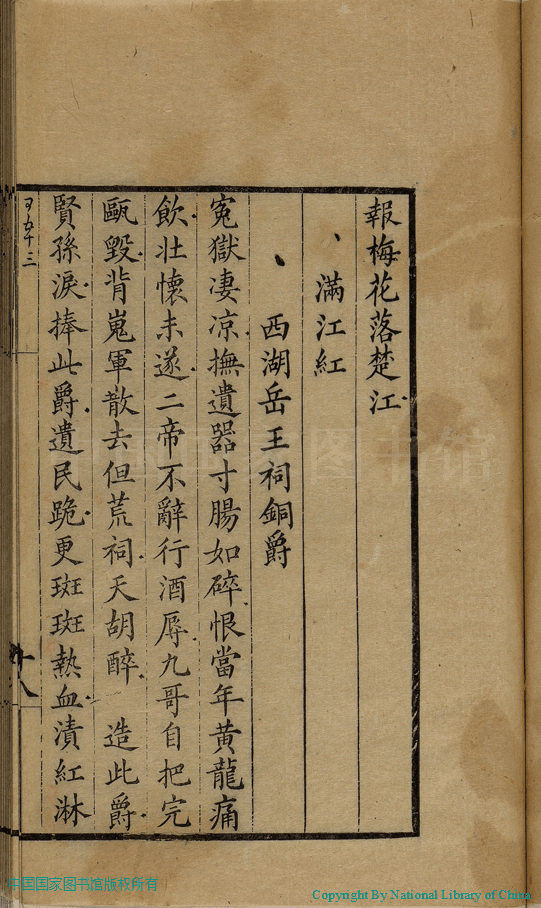 報梅花落楚江
滿江紅
西湖岳王祠銅爵
寃獄凄凉撫遺器寸腸如碎恨當年黄龍痛
飲壯懷未遂二帝不辭行酒辱九哥自把完
甌毀背嵬軍散去但荒祠天胡醉 造此爵
賢孫淚捧此爵遺民跪更斑斑熱血漬紅淋
十八
中国国家图书馆版权所有
Copyright By National Library of China